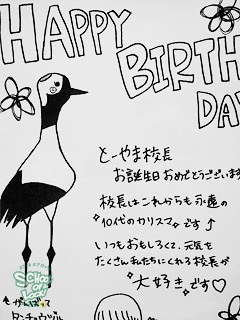 HAPPY
BIRTH
DAY
とーやま校長
お誕生日おめでとうございます
校長はこれからも永遠の
10代のカリスマです↑
いつもおもしろくて、元気を
たくさん私たちにくれる校長が
大好きです♡
SCHOOL
OF
LOCK!
↑がんばって
タンチョウヅル